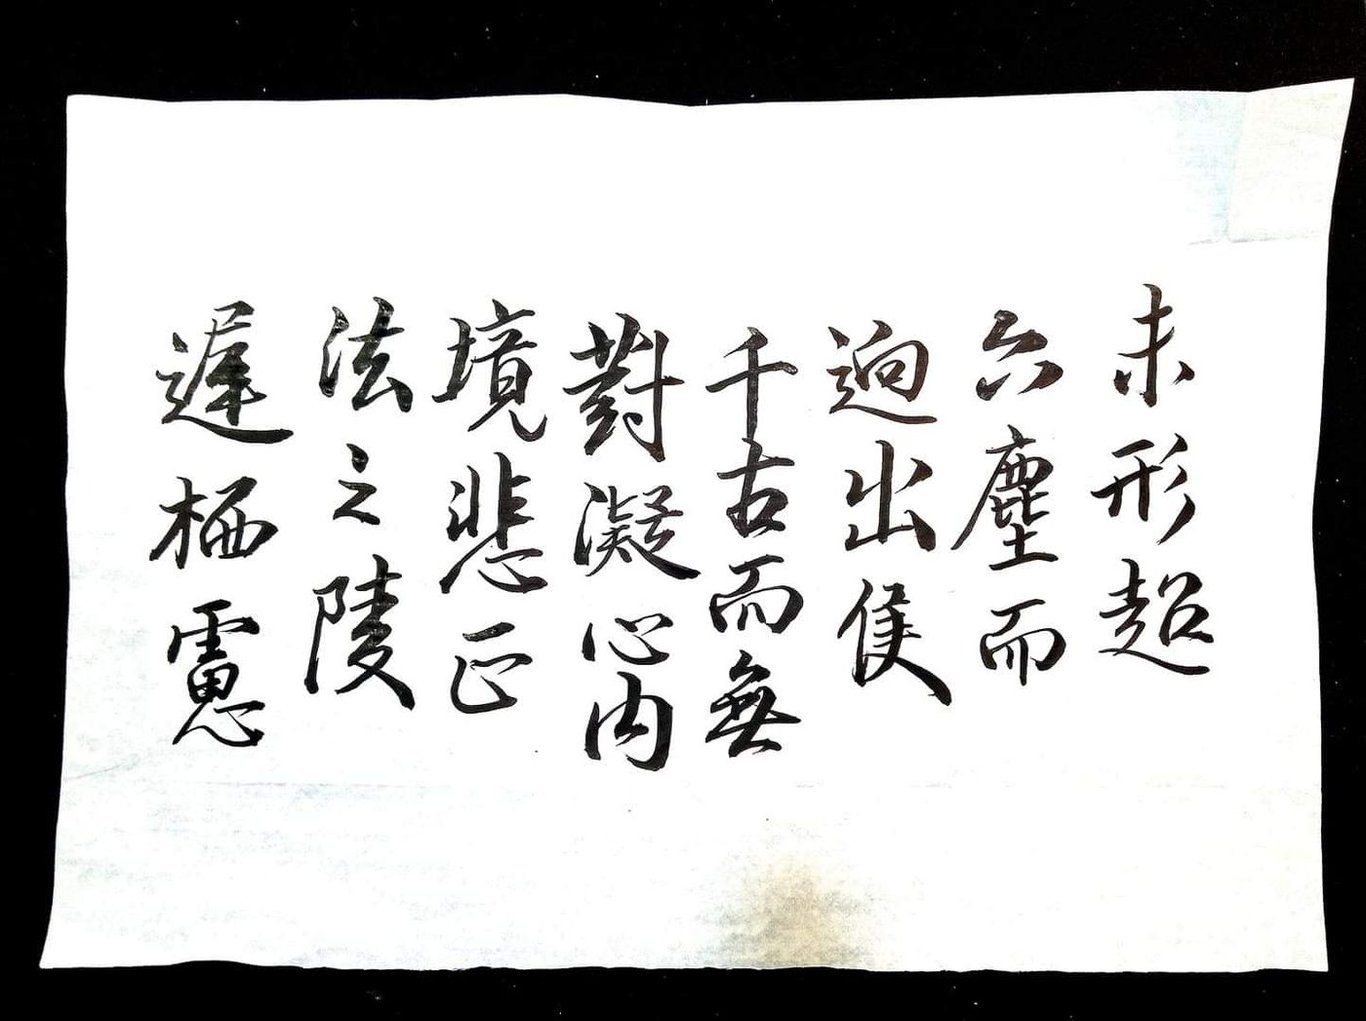 未形超
六塵而
迥出隻
千古而無
對凝心內
境悲正
法之陵
遲栖慮